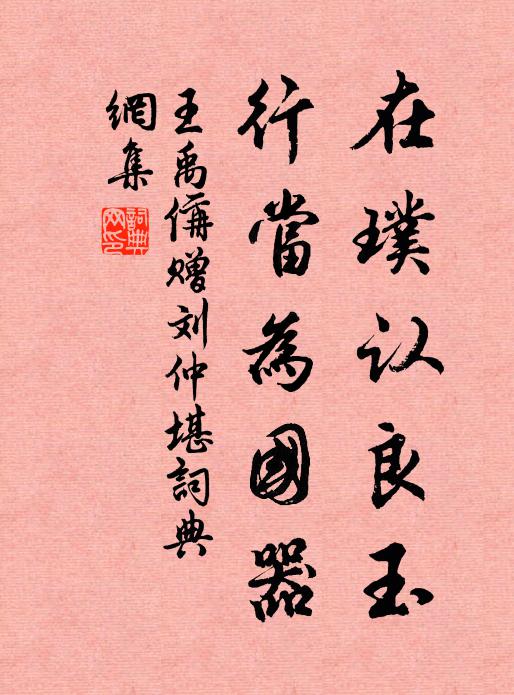 在璞认良玉
行當為國器
王禹偁赠刘仲堪詞典
網集
詞典
网印